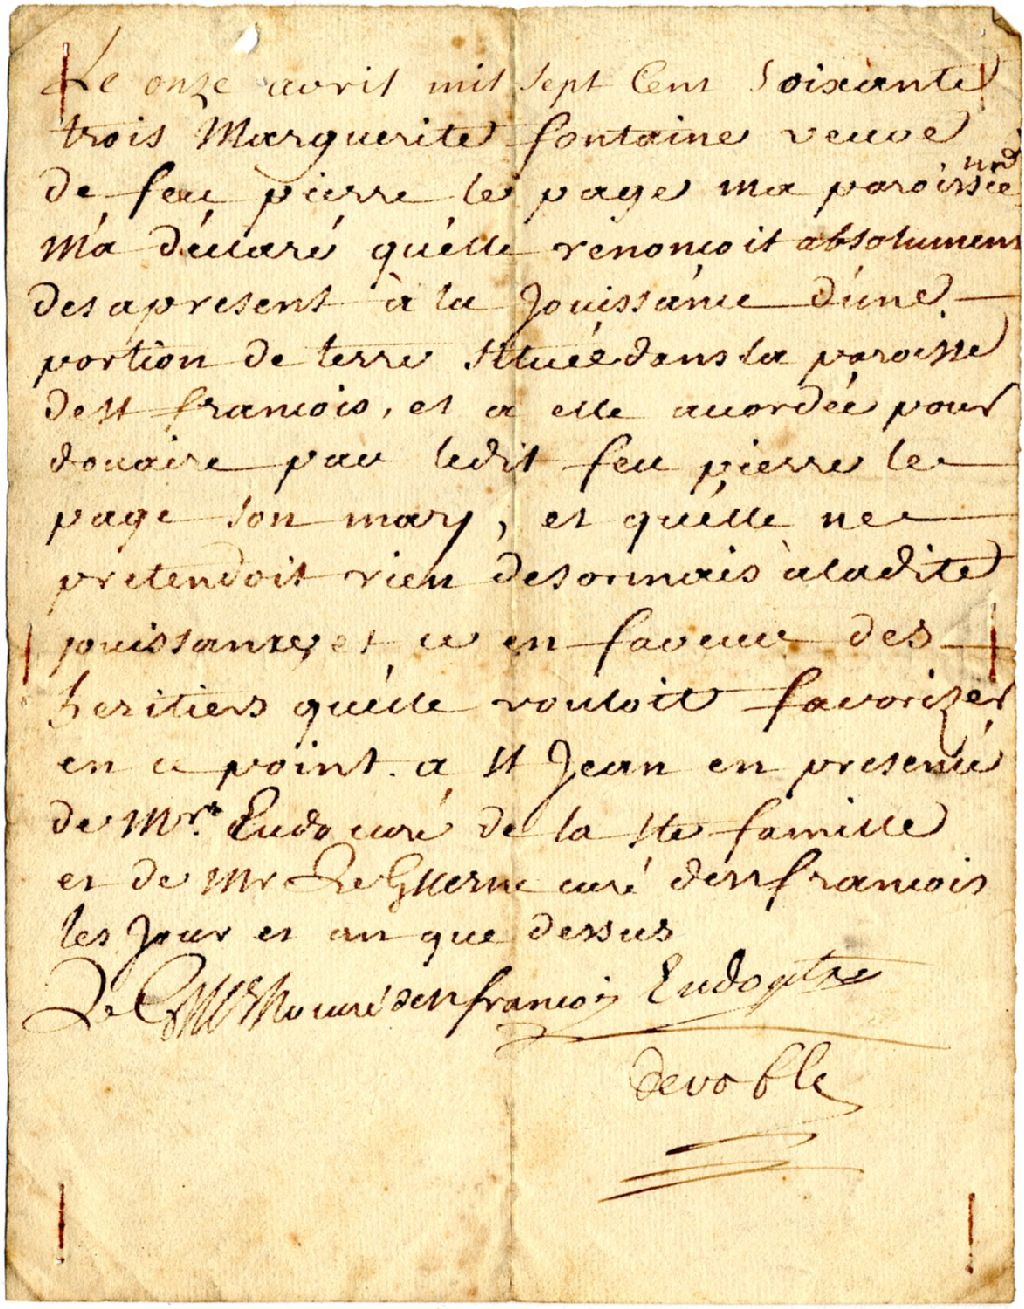 Le onze avril mil sept Cent Soixante
trois Marguerite fontaine veuve
de feu pierre le page ma paroissienne
M'a déclaré qu'elle renoncoit absolument
des apresent à la Jouissance d'une
portion de terre située dans la paroisse
de st francois, et a elle acordée pour
douaire par ledit feu pierre le
page son mary, et qu'elle ne
pretendoit rien desormais à ladite
jouissance, et ce en faveur des
heritiers qu'elle vouloit favorizer
en ce point. a st Jean en presence
de Mrs. Eudo curé de la ste famille
et de Mr Le Guerne curé de st francois
les Jour et an que dessus
Le Guerne curé de st francois Eudo ptre
devoble